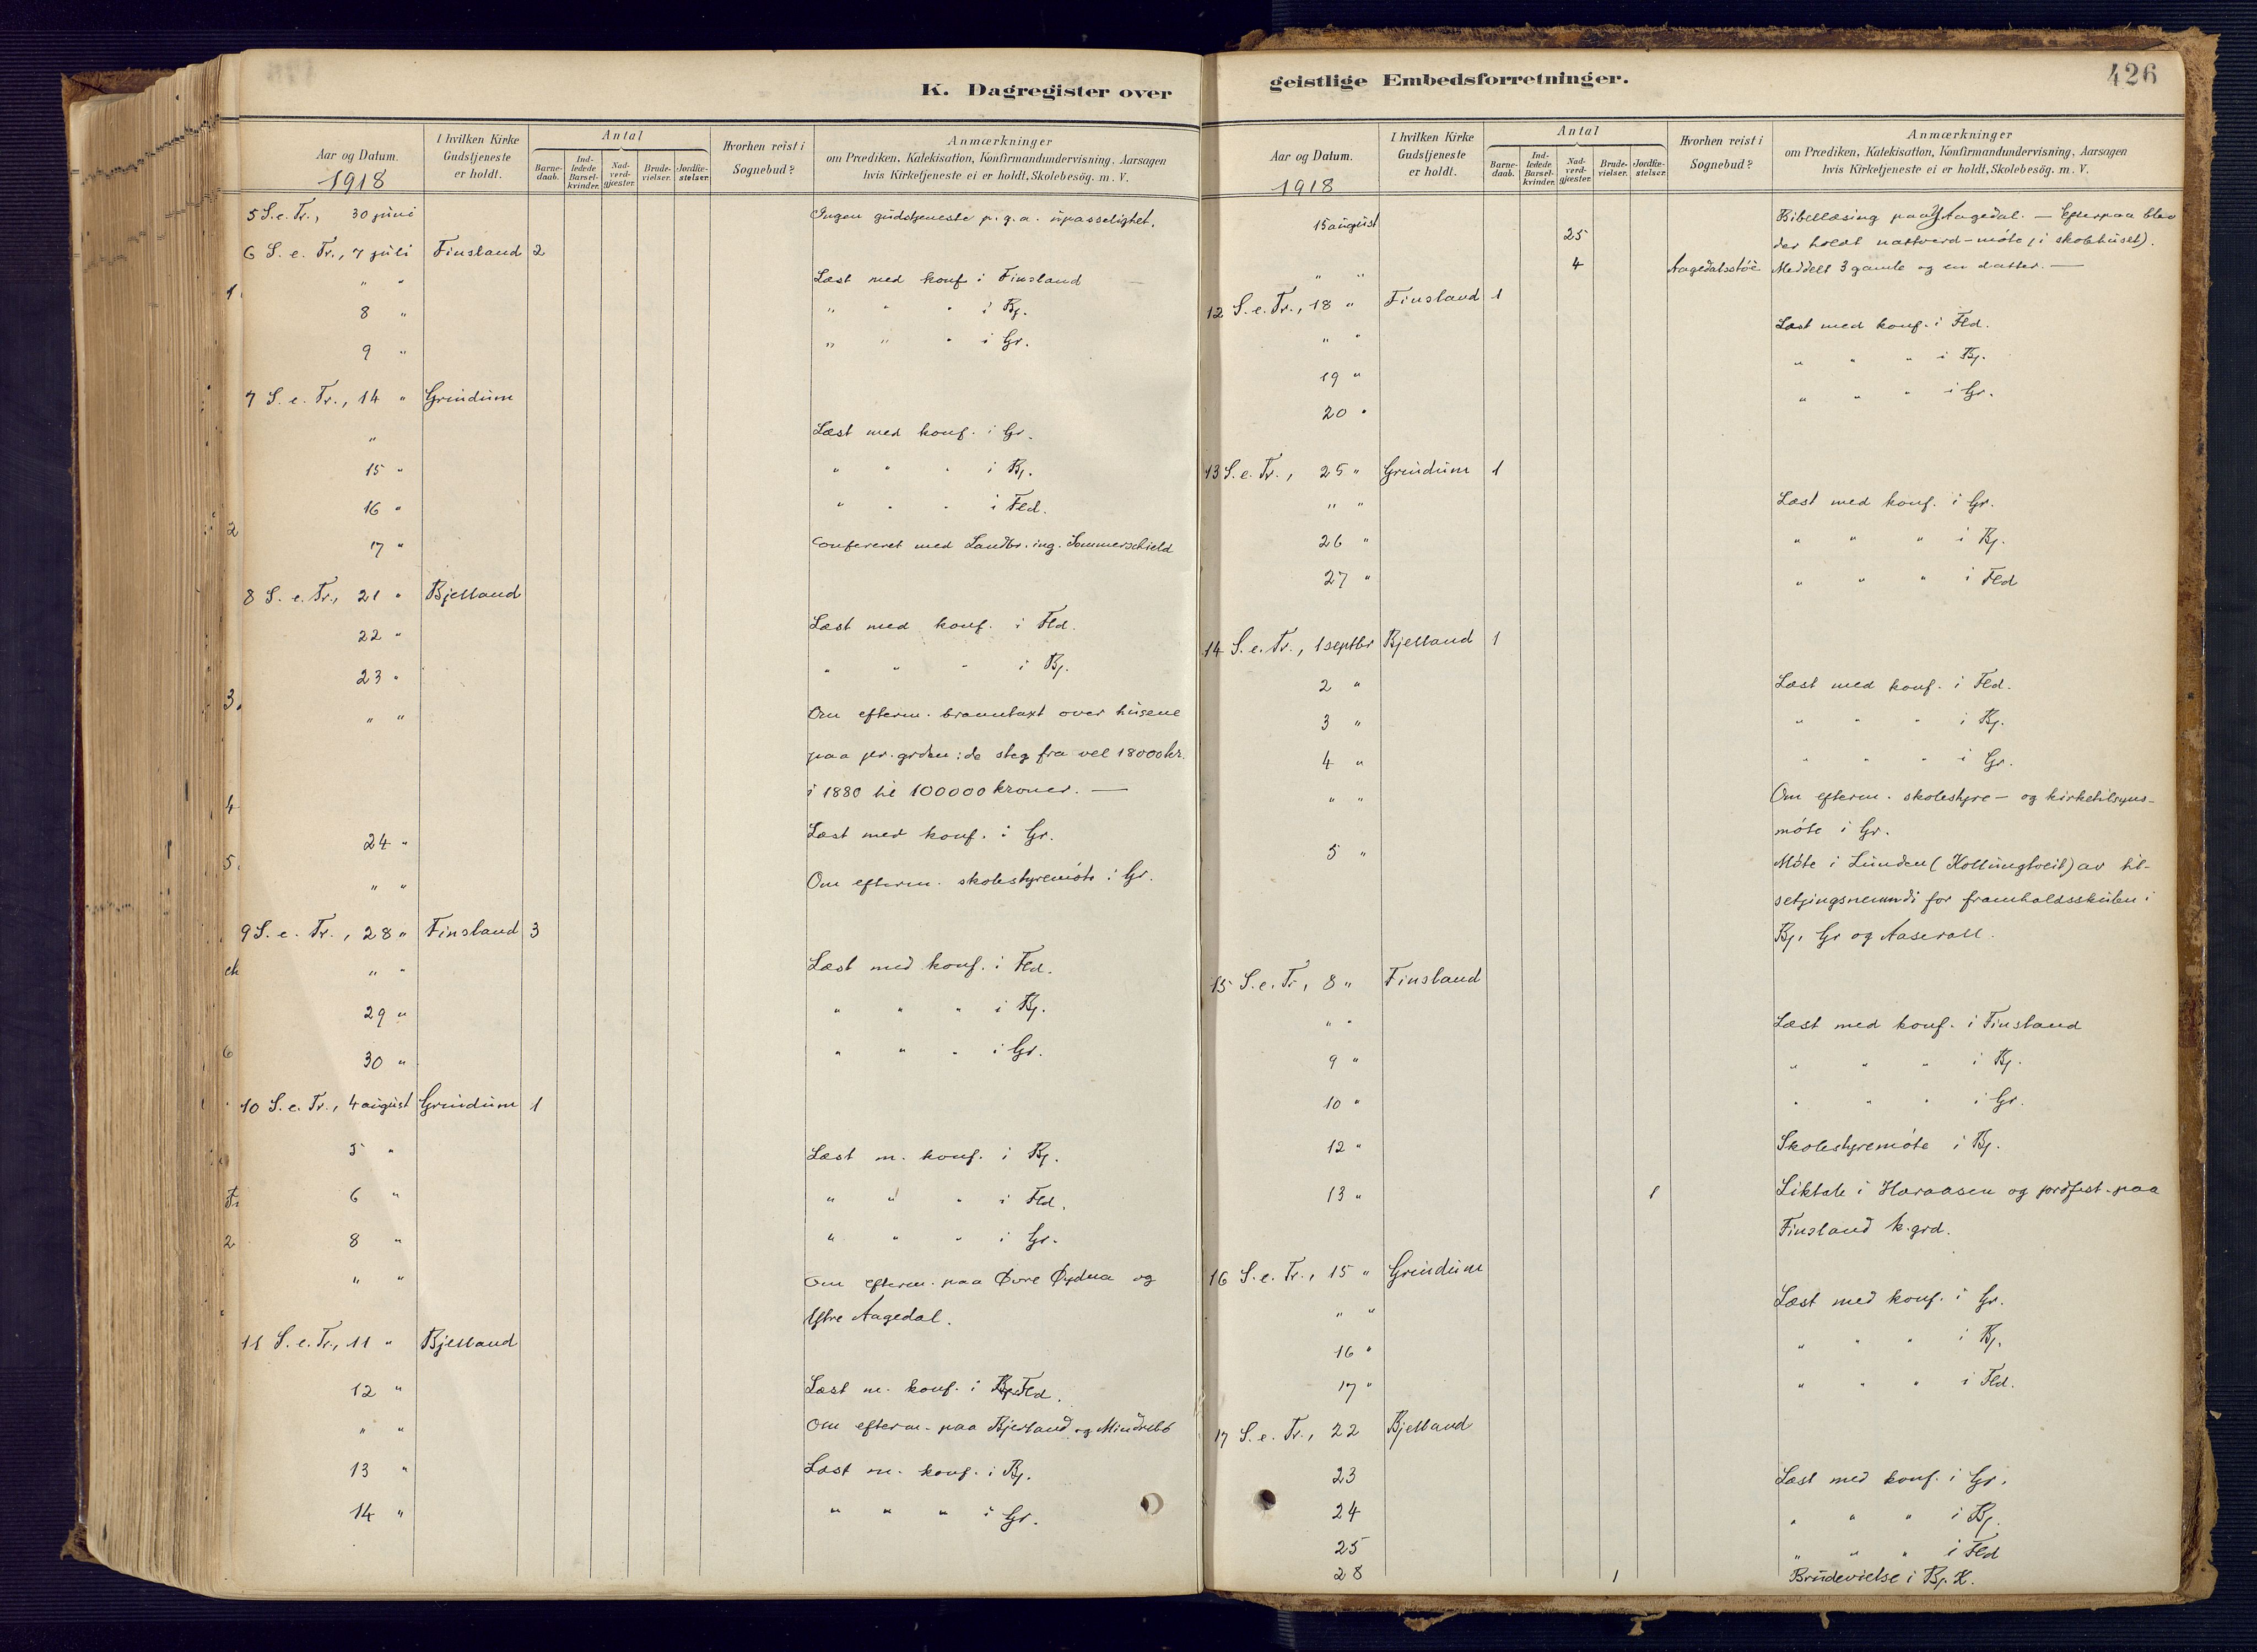 K. Dagregister over
Aar og Datum.
1918
I hvilken Kirke Gudstjeneste er holdt.
Antal
Barne-daab.
Ind-ledede Barsel-kvinder.
Nad-verd-gjester.
Brude-vielser.
Jordfæ-stelser.
Hvorhen reist i Sognebud?
Anmærkninger
om Prædiken, Katekisation, Konfirmandundervisning, Aarsagen
hvis Kirketjeneste ei er holdt, Skolebesög. m. V.
5 S. e. Tr., 30 juni Ingen gudstjeneste p. g. a. upasselighet.
6 S. e. Tr., 7 juli Finsland 2
" " Læst med konf. i Finsland
8 " " " " i Bj.
9 " " " " i Gr.
7 S. e. Tr., 14 " Grindum
" Læst med konf. i Gr.
15 " " " " i Bj.
16 " " " " i Fld.
17 " Confereret med Landbr. ing. Sommerschield
8 S. e. Tr., 21 " Bjelland
22 " Læst med konf. i Fld.
23 " " " " i Bj.
" " Om efterm. branntaxt over husene
paa pr. grden: de steg fra vel 18000 kr.
i 1880 til 100000 kroner. —
24 " Læst med konf. i Gr.
" " Om efterm. skolestyremöte i Gr.
9 S. e. Tr., 28 " Finsland 3
" " Læst med konf. i Fld.
29 " " " " i Bj.
30 " " " " i Gr.
10 S. e. Tr., 4 august Grindum 1
5 " Læst m. konf. i Bj.
6 " " " " i Fld.
8 " " " " i Gr.
" " Om efterm. paa Øvre Øydna og
Ytre Aagedal.
11 S. e. Tr., 11 " Bjelland
12 " Læst m. konf. i Fld.
" " Om efterm. paa Bjelland og Mindrebö
13 " Læst m. konf. i Bj.
14 " " " " i Gr.
geistlige Embedsforretninger.
426
Aar og Datum.
1918
I hvilken Kirke Gudstjeneste er holdt.
Antal
Barne-daab.
Ind-ledede Barsel-kvinder.
Nad-verd-gjester.
Brude-vielser.
Jordfæ-stelser.
Hvorhen reist i Sognebud?
Anmærkninger
om Prædiken, Katekisation, Konfirmandundervisning, Aarsagen
hvis Kirketjeneste ei er holdt, Skolebesög. m. V.
15 august 25 Bibellæsing paa Y Aagedal. — Efterpaa blev
der holdt nattverd-möte (i skolehuset).
" " 4 Aagedalsstöe Meddelt 3 gamle og en datter. —
12 S. e. Tr., 18 " Finsland 1
" " Læst med konf. i Fld.
19 " " " " i Bj.
20 " " " " i Gr.
13 S. e. Tr., 25 " Grindum 1
" " Læst med konf. i Gr.
26 " " " " i Bj.
27 " " " " i Fld
14 S. e. Tr., 1 septbr Bjelland 1
2 " Læst med konf. i Fld.
3 " " " " i Bj.
4 " " " " i Gr.
" " Om efterm. skolestyre- og kirketilsyns-
möte i Gr.
5 " Möte i Lunden (Kollungtveit) av til-
setjingsnemndi for framhaldsskulen i
Bj. Gr og Aaserall.
15 S. e. Tr, 8 " Finsland
" " Læst med konf. i Finsland
9 " " " " i Bj.
10 " " " " i Gr.
12 " Skolestyremöte i Bj.
13 " 1 Liktale i Haraasen og jordfest. paa
Finsland k.grd.
16 S. e. Tr., 15 " Grindum
" " Læst med konf. i Gr.
16 " " " " i Bj.
17 " " " " i Fld.
17 S. e. Tr., 22 Bjelland
23 Læst med konf. i Gr.
24 " " " i Bj.
25 " " " i Fld
28 1 Brudevielse i Bj. K.